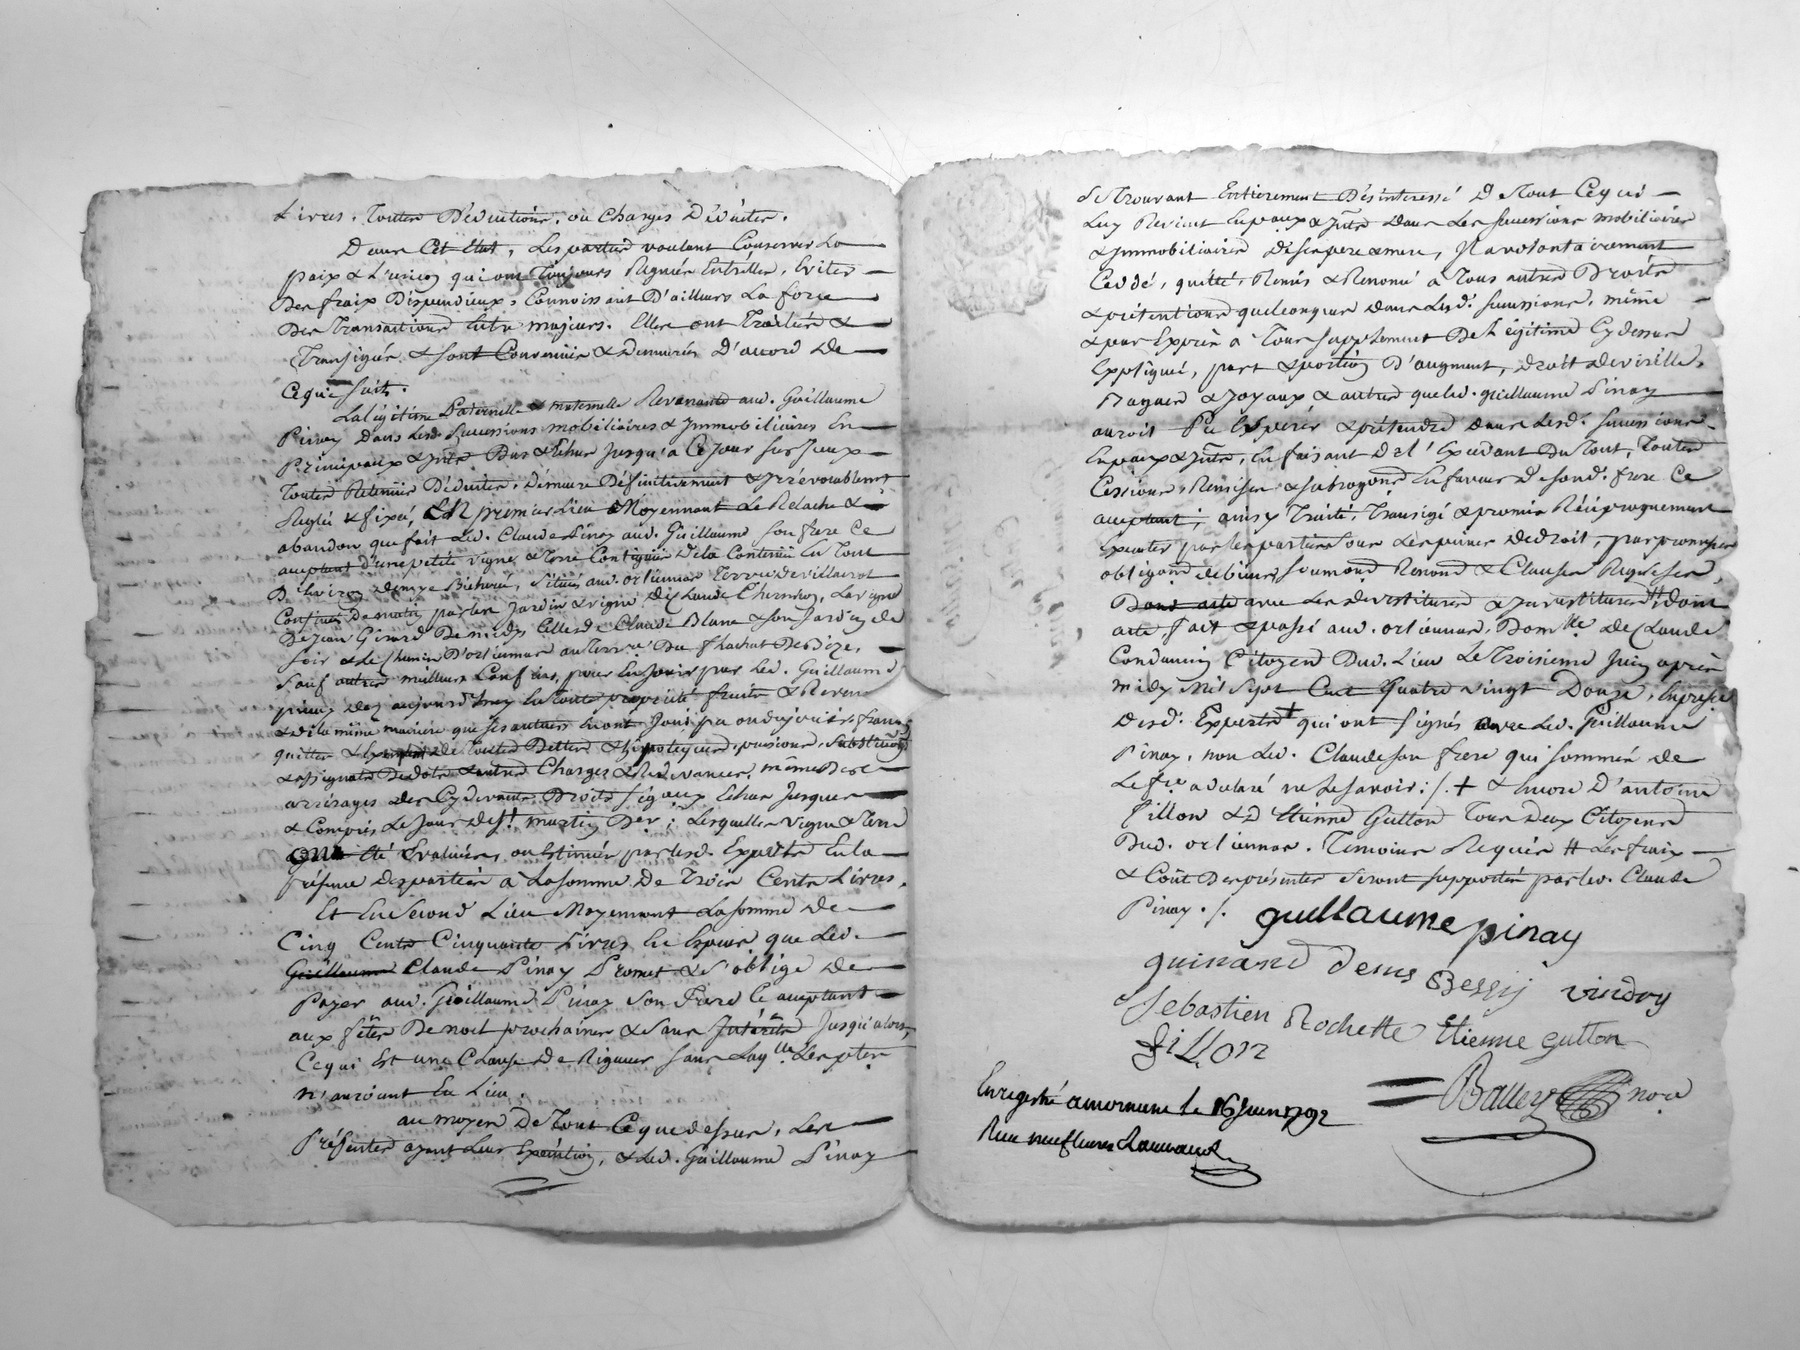 Livres. Toutes Déductions, ou Charges Déduites.
Dans Cet Etat, Les parties voulant Conserver La
paix & L'union qui ont Toujours Regnées Entr'elles, Eviter
Des fraix Dispendieux, Connoissant D'ailleurs La force
Des Transactions Entre majeurs. Elles ont Traitées &
Transigées & sont Convenües & Demurés D'accord De
Ce qui suit.
La Légitime Paternelle & maternelle Revenante aud. Guillaume
Pinay Dans Lesd. Successions mobiliaires & Jmmobiliaires En
Principaux & Jnts Dus & Echus Jusqu'à Ce Jour sur Jceux
Toutes Retenües Déduites, Demeure Définitivement & Jrrévocablement
Reglée & fixée, En premier Lieu Moyennant Le Relache &
abandon que fait Led. Claude Pinay aud. Guillaume son frere Ce
acceptant D'une petite vigne & Terre Contigüe De la Contenüe En Tout
D'Environ Demye Bicherée, Situés aud. orliennas Terroir De villairot
Confinés De matin par les Jardin & vigne De Claude Charretton, La vigne
De Jean Girard De midy Celles De Claude Blanc & son Jardin de
soir & Le Chemin D'orliennas au Terroir Du flachat De Bize,
sauf autres meilleurs Confins, pour En Jouir par Led. Guillaume
pinay Dez aujourd'huy En Toute propriété fruits & Revenus
& De la même maniere que ses auteurs En ont Joui, pu ou du Jouir, francs
quittes & Exempts de Toutes Dettes & hipoteques, pensions, substitutions
& assignats De Dots & autres Charges & Redevances, même Des
arrérages Des Cy devants Droits sigaux Echus Jusques
& Compris Le Jour de St. martin Der; Lesquelles vigne & Terre
ont Eté Evaluées ou Estimées par Lesd. Experts En la
présence Des parties à La somme De Trois Cents Livres.
Et En Second Lieu Moyennant La somme De
Cinq Cents Cinquante Livres En Especes que Led.
Guillaume Claude Pinay Promet & s'oblige De
Payer aud. Guillaume Pinay son frere Ce acceptant
aux fêtes De noel prochaines & sans Jntérêts Jusqu'alors,
Ce qui Est une Clause De Rigueur sans Laqlle Les ptes
n'auroient Eu Lieu.
au moyen De Tout Ce que dessus, Les
Présentes ayant Leur Exécution, & Led. Guillaume Pinay
Se Trouvant Entierement Désinteressé De Tout Ce qui
Luy Revient En paux & Jnts Dans Les successions mobiliaires
& Jmmobiliaires De ses pere & mere, Jl a volontairement
Ceddé, quitté, Remis & Renoncé à Tous autres Droits
& prétentions quelconques Dans Lesd. successions, même
& par Exprès à Tous supplement De Légitime Cydessus
Expliqué, part & portion D'augment, Droit de virille,
Bagues & Joyaux & autres que Led. guillaume Pinay
auroit Pu Espérer & prétendre Dans Lesd. successions
En paux & Jnts, En faisant De l'Excédant Du Tout, Toutes
Cessions, Remises & subrogations En faveur De sond. frere Ce
acceptant; ainsy Traité, Transigé & promis Réciproquement
Executer par les parties sous Les peines De Droit, par promesses
obligaons de biens soumons Renons & Clauses Requises
Dont acte avec Les Devestitures & Jnvestitures # Dont
acte, fait & passé aud. orliennas, Domlle De Claude
Condamin Citoyen Dud. Lieu Le Troisieme Juin après
midy Mil Sept Cent Quatre vingt Douze, En présce
Desd. Experts + qui ont signés avec Led. Guillaume
Pinay, non Led. Claude son frere qui sommé de
Le fre a declaré ne Le savoir; /. + & Encore D'antoine
fillon & D'Etienne Gutton Tous Deux Citoyens
Dud. orliennas. Temoins Requis # Les fraix
& Coût Des présentes seront supportés par Led. Claude
Pinay. /.
guillaume pinay
guinand Denis Bessy vindry
Sebastien Rochette Etienne gutton
fillon
Balley nore
Enregistré a mornant le 16 Juin 1792
Reçu neuf livres